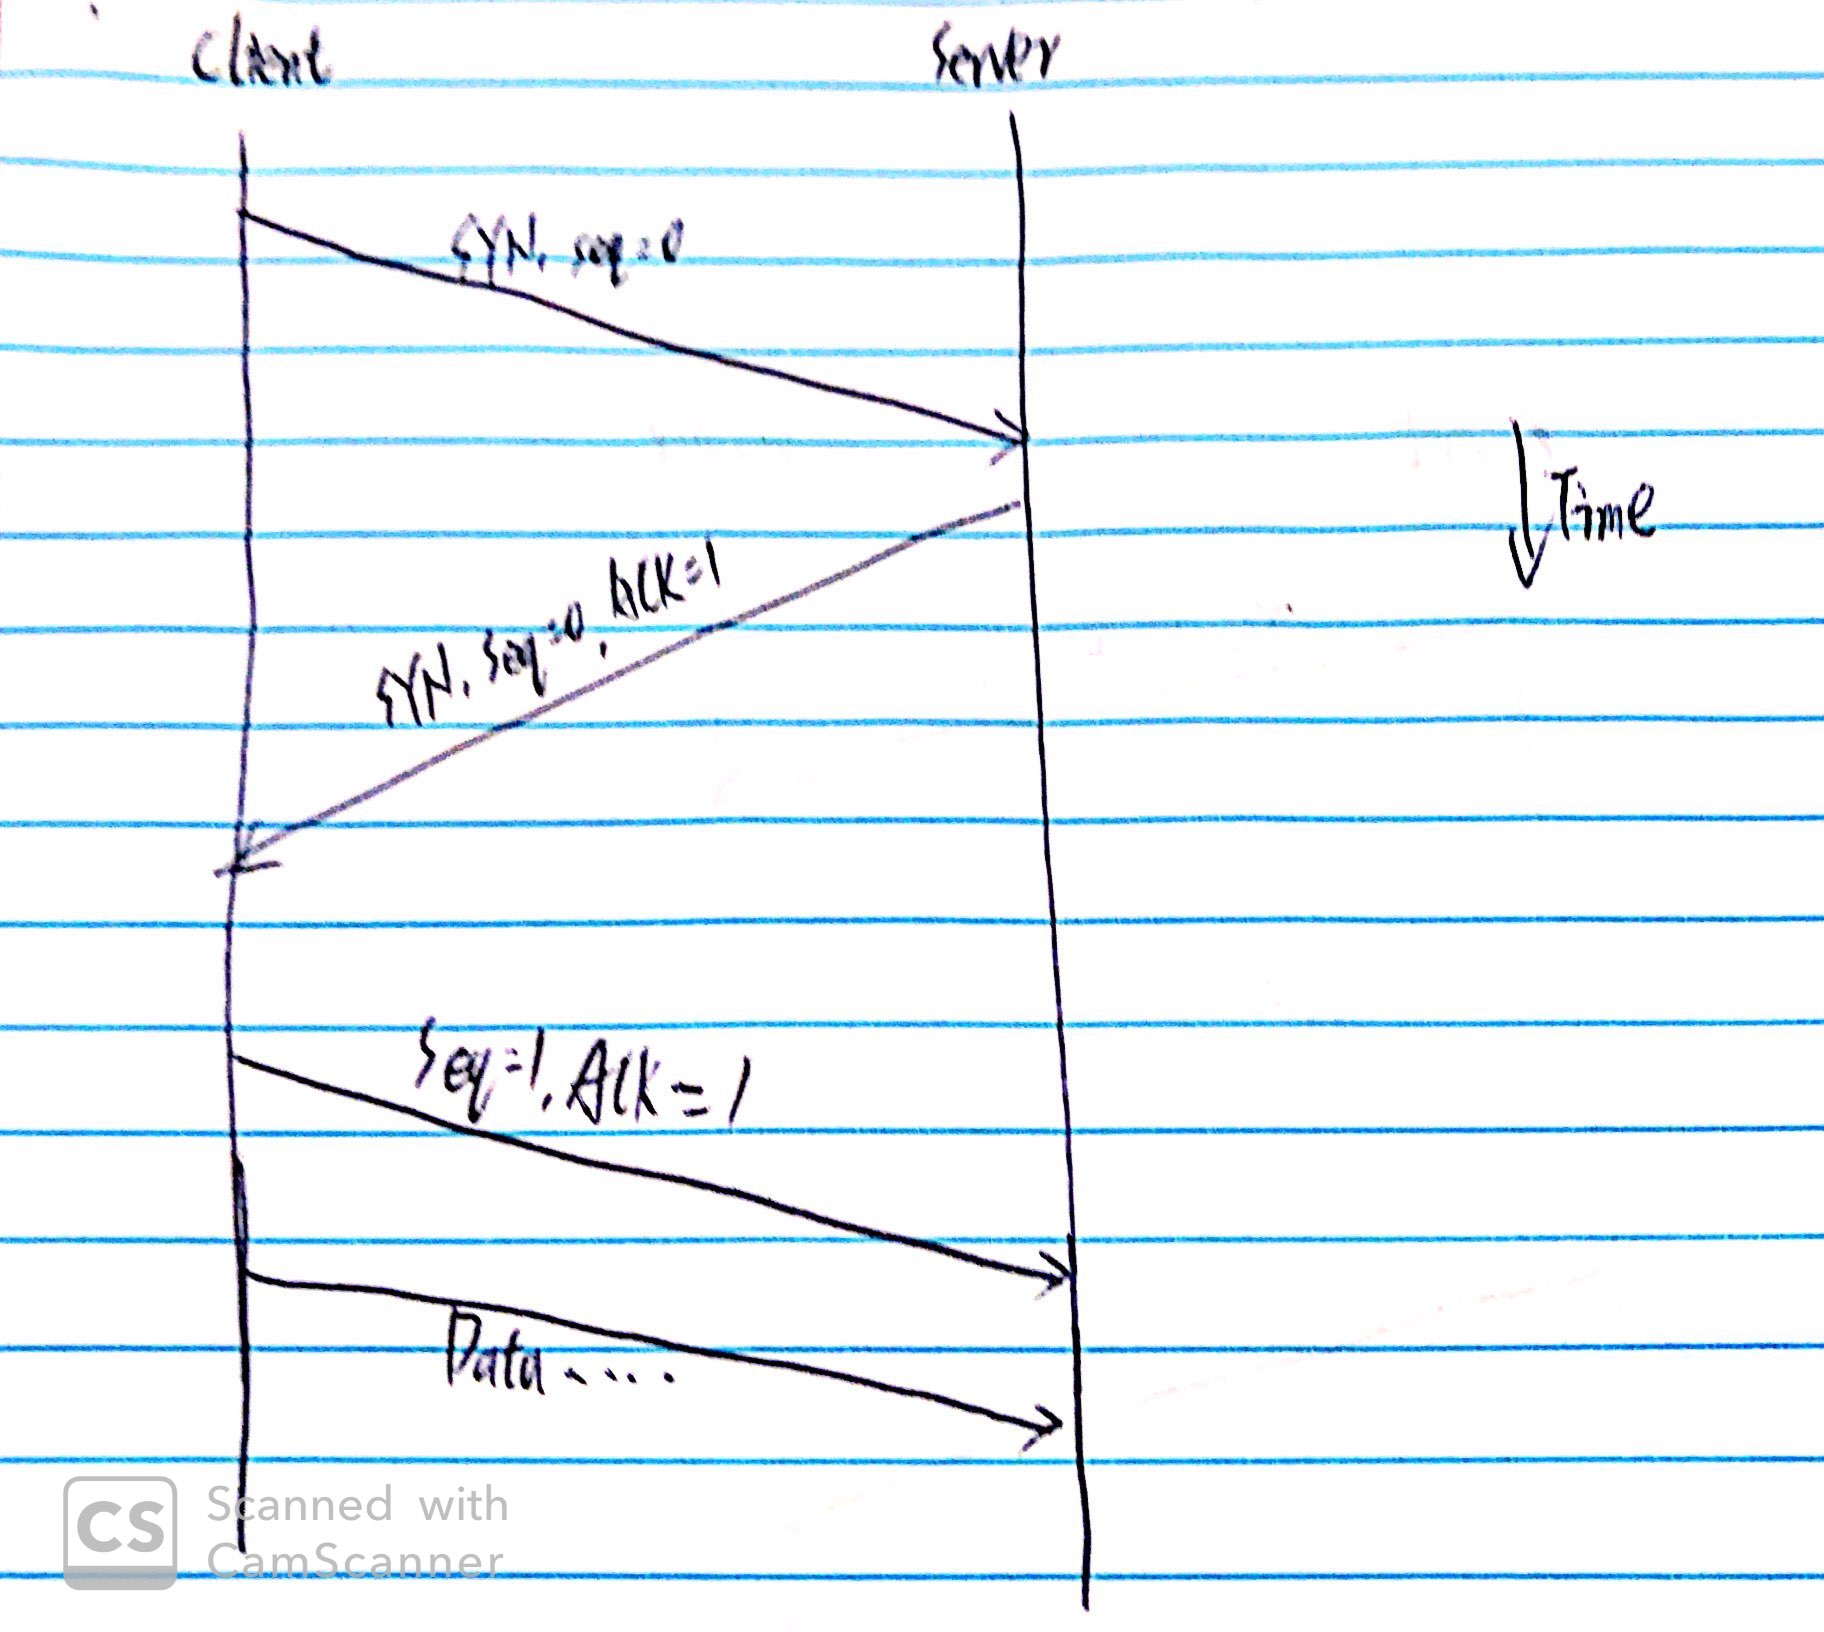 Client Server
SYN, seq=0
Time
SYN, Seq=0, ACK=1
Seq=1, ACK=1
Data.....
CS Scanned with
CamScanner